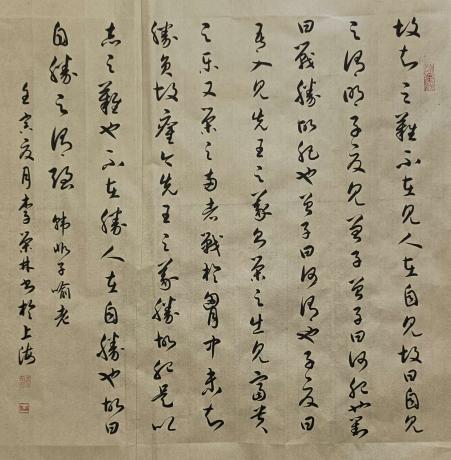 故知之難不在見人在自見故曰自見
之謂明子夏見曾子曾子曰何肥也對
曰戰勝故肥也曾子曰何謂也子夏曰
吾入見先王之義則榮之出見富貴
之樂又榮之兩者戰於胸中未知
勝負故癯今先王之義勝故肥是以
志之難也不在勝人在自勝也故曰
自勝之謂強 韓非子喻老
壬寅夏月李榮林書於上海